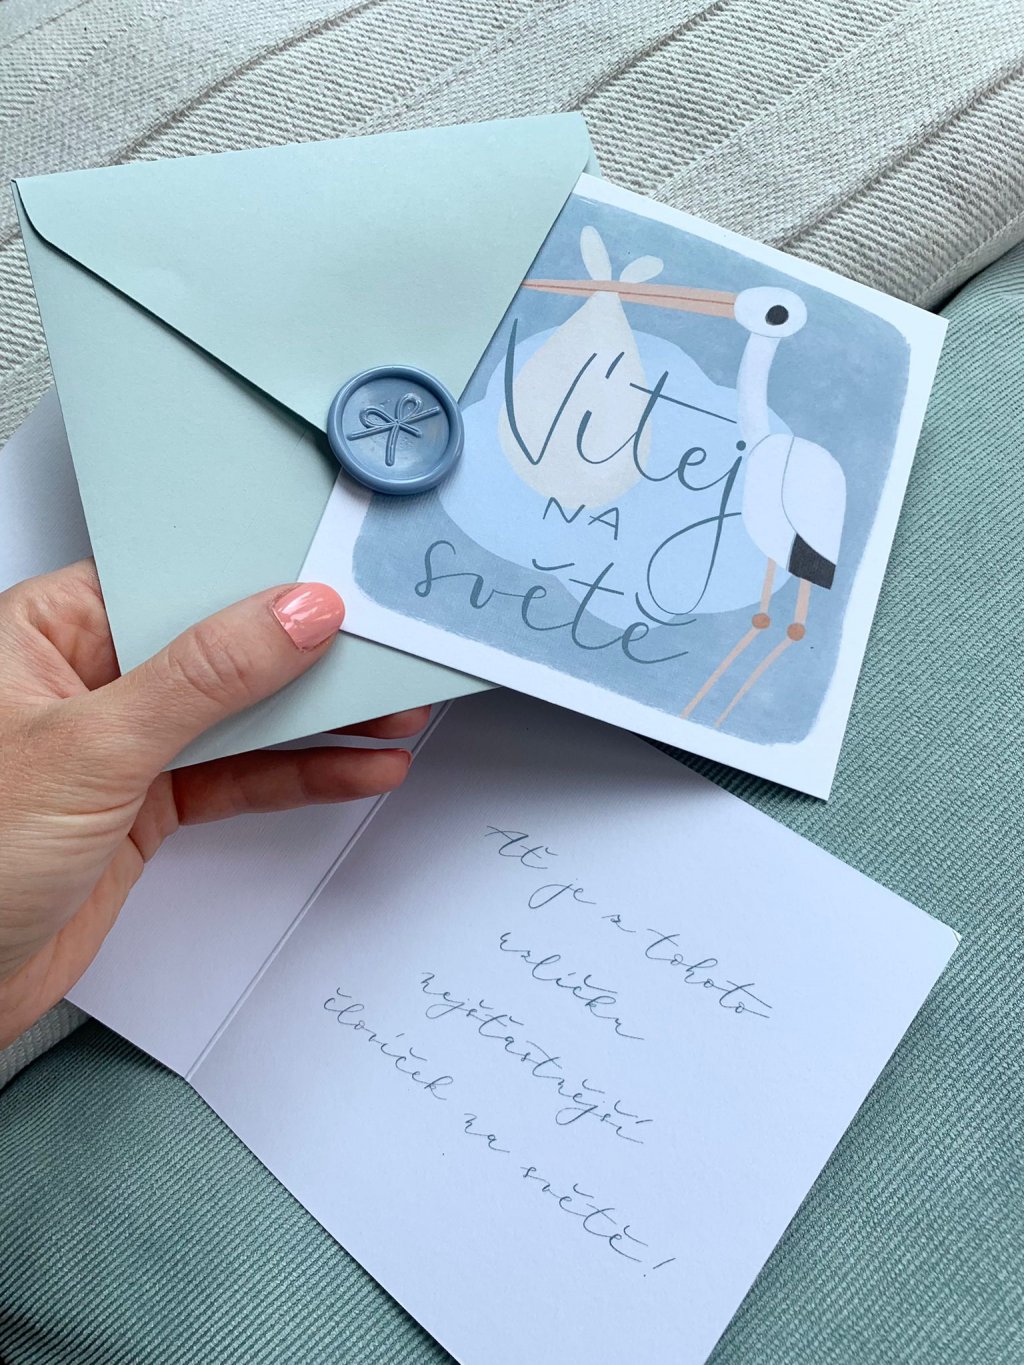 Vítej
NA
světě
Ať je z tohoto
uzlíčku
nejšťastnější
človíček na světě!